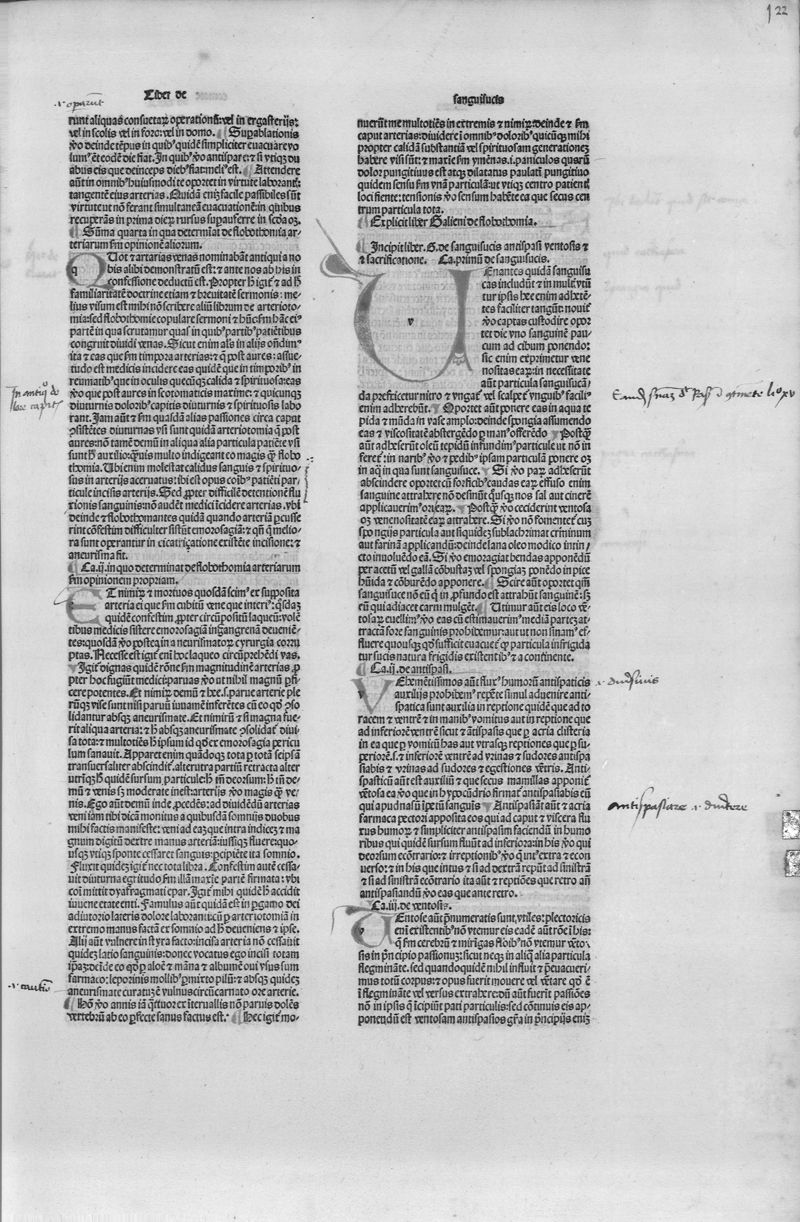 122
Liber de
sanguisucis
runt aliquas consuetaꝝ operationũ: vel in ergasterijs:
vel in scolis vel in foro: vel in domo. Supablationis
ꝟo deinde tẽpus in quibꝰ quidẽ simpliciter euacuare vo
lumꝰ ẽt eodẽ die fiat. In quibꝰ ꝟo antispare: ⁊ si vtiqꝫ du
abus eis que deinceps diebꝰ fiat: meliꝰ est. Attendere
aũt in omnibꝰ huiusmodi te oportet in virtute laborantẽ:
tangentẽ eius arterias. Quidã eniꝫ facile passibiles sũt
virtute ut nõ ferant simultaneã euacuationẽ: in quibus
recuperãs in prima dieꝝ rursus supauferre in scđa oꝫ.
Sũma quarta in qua determinat de flobothomia ar-
teriarum ẜm opinionẽ aliorum.
QUot ⁊ artarias venas nominabãt antiqui a no
bis alibi demonstratũ est: ⁊ ante nos ab his in
confessione deductũ est. Propter hͦ igit̃ ⁊ ad hͦ
familiaritatẽ doctrine etiam ⁊ breuitatẽ sermonis: me-
lius visum est mihi nõ scribere aliũ librum de arterioto-
mia: sed flobothomie copulare sermoni ⁊ hũc ẜm hãc ei?
partẽ in qua scrutamur quas in quibꝰ partibꝰ patiẽtibus
congruit diuidi venas. Sicut enim als in alijs oñdim?
ita ⁊ eas que ẜm timpora arterias: ⁊ q̃ post aures: assue-
tudo est medicis incidere eas quidẽ que in timporibꝰ in
reumatibꝰ que in oculis quecũqꝫ calida ⁊ spirituosa: eas
ꝟo que post aures in scotomaticis maxime: ⁊ quicunqꝫ
diuturnis doloribꝰ capitis diuturnis ⁊ spirituosis labo
rant. Jam aũt ⁊ ẜm quasdã alias passiones circa caput
ꝯsistẽtes diuturnas vsi sunt quidã arteriotomia q̃ post
aures: nõ tamẽ demũ in aliqua alia particula patiẽte vsi
sunt hͦ auxilio: q̃uis multo indigeant eo magis q̃ flobo
thomia. Vbi enim molestat calidus sanguis ⁊ spirituo-
sus in arterijs aceruatus: ibi est opus coĩbꝰ patiẽti par-
ticule incisis arterijs. Sed propter difficilẽ detentionẽ flu
xionis sanguinis: nõ audẽt medici ĩcidere arterias. vbi
deinde ⁊ flobothomantes quidã quando arteriã ꝑcusse
rint confestim difficulter sistũt emorosagiã: ⁊ qñ q̃ melio-
ra sunt operantur in cicatriçatione existẽte incisione: ⁊
aneurisma fit.
Ca. ij. in quo determinat de flobothomia arteriarum
ẜm opinionem propriam.
ET nimiꝝ ⁊ mortuos quosdã scimꝰ ex supposita
arteria ei que ẜm cubitũ vene que interiꝰ: q̃sdaꝫ
quidẽ confestim propter circũpositũ laqueũ: volẽ
tibus medicis sistere emorosagiã in gangrenã deueniẽ-
tes: quosdã ꝟo postea in aneurismatoꝝ cyrurgia corru
ptas. Necesse est igit̃ enĩ hoc laqueo circũprehẽdi vas.
Jgit̃ dignas quidẽ rõne ẜm magnitudinẽ arterias pro
pter hoc fugiũt medici: paruas ꝟo ut nihil magnũ pfi-
cere potentes. Et nimiꝝ demũ ⁊ hee. s. parue arterie ple
rũqꝫ vise sunt nisi paruũ iuuamẽ inferẽtes cũ eo ꝙ ꝯso
lidantur absqꝫ aneurismate. Et nimirũ ⁊ si magna fue-
rit aliqua arteria: ⁊ hͦ absqꝫ aneurismate ꝯsolidat̃ diui
sa tota: ⁊ multotiẽs hͦ ipsum id ꝙ ex emorosagia pericu
lum sanauit. Apparet enim quãdoqꝫ tota ꝑ totã seipsã
transuersaliter abscindit̃. alterutra partiũ retracta alter
utriqꝫ hͦ quidẽ sursum particule: hͦ ĩm deorsum: hͦ ĩñ de-
mũ ⁊ venis ꝫ moderate inest: arterijs ꝟo magis q̃ ve-
nis. Ego aũt demũ inde procedẽs: ad diuidẽdũ arterias
veni iam tibi vicã monitus a quibusdã somnijs duobus
mihi factis manifeste: veni ad eaꝫ que intra indicẽ ⁊ ma
gnum digitũ dextre manus arteriã: iussiqꝫ fluere: quo-
usqꝫ vtiqꝫ sponte cessaret sanguis: ꝑcipiẽte ita somnio.
Fluxit quidẽꝫ igit̃ nec tota libra. Confestim autẽ cessa-
uit diuturna egritudo ẜm illã maxie partẽ firmata: vbi
coĩt mittit dyafragmati epar. Jgit̃ mihi quidẽ hͦ accidit
iuuene etate enti. Famulus aũt quidã est in pergamo dei
adiutorio lateris dolore laborantis: cũ ꝑ arteriotomiã in
extremo manus factã ex somnio ad hͦ deueniens ⁊ ipse.
Alij aũt vulnere in styra facto: incisa arteria nõ cessauit
quidẽꝫ latio sanguinis: donec vocatus ego incisi totam
ipꝫã: deĩde eo ꝙ ꝑ aloẽ ⁊ mãna ⁊ albumẽ oui vsus sum
farmaco: leporinis mollibꝰ ꝑmixto pilis: ⁊ absqꝫ quidẽꝫ
aneurismate curatuꝫ ẽ vulnus circũcarnato ore arterie.
Hõ ꝟo annis iã quatuor ex ĩteruallis nõ paruis dolẽs
vertebrũ ab eo ꝑfecte sanus factus est. Hec igit̃ mo-
nuerũt me multotiẽs in extremis ⁊ nimiꝝ: deinde ⁊ ẜm
caput arterias: diuidere ĩ omnibꝰ doloribꝰ quicũqꝫ mihi
propter calidã substantiã vel spirituosam generationeꝫ
habere visi sũt: ⁊ maxie ẜm ymẽnas. i. paniculos quorũ
dolor pungitiuus est atqꝫ dilatatus paulatĩ pungitiuo
quidem sensu ẜm vnã particulã: ut vtiqꝫ centro patienti
loci fiente: tensionis ꝟo sensum habẽte ea que secus cen
trum particula tota.
Explicit liber Galieni de flobothomia.
Incipit liber. G. de sanguisucis antispasi ventosis ⁊
⁊ sacrificatione. Ca. primũ de sanguisucis.
VEnantes quidã sanguisu
cas includũt ⁊ in multẽ vtũ
tur ipsis hec enim adherẽ-
tes faciliter tangũt: nouit̃
ꝟo captas custodire opor
tet die vno sanguinẽ pau-
cum ad cibum ponendo:
sic enim exprimetur vene
nositas earꝝ: in necessitate
aũt particula sanguisucã-
da prefricetur nitro ⁊ vngat̃ vel scalpet̃ vnguibꝰ faciliꝰ
enim adherebũt. Oportet aũt ponere eas in aqua te
pida ⁊ mũda in vase amplo: deinde spongia assumendo
eas ⁊ viscositatẽ abstergẽdo ꝑ manꝰ offerẽdo. Postq̃
aũt adheserũt oleũ tepidũ infundim? particule ut nõ in
feret̃: in naribꝰ ꝟo ⁊ pedibꝰ ipsam particulã ponere oꝫ
in aq̃ in qua sunt sanguisuce. Si ꝟo paꝝ adheserũt
abscindere oportet cũ forficibꝰ caudas eaꝝ effuso enim
sanguine attrahere nõ desinũt q̃usqꝫ nos sal aut cinerẽ
applicauerimꝰ ori eaꝝ. Postq̃ ꝟo ceciderint ventosa
oꝫ venenositatẽ eaꝝ attrahere. Si ꝟo nõ fomentet̃ cuꝫ
spongijs particula aut si quidẽꝫ sublachrimat ciminum
aut farinã applicandũ: deinde lana oleo modico intin-
cto inuoluẽdo eã. Si ꝟo emoragiat bendas apponẽdũ
per acetũ vel gallã cõbustaꝫ vel spongiaꝫ ponẽdo in pice
hũida ⁊ cõburẽdo apponere. Scire aũt oportet qm̃
sanguisuce nõ eũ q̃ in profundo est attrahũt sanguinẽ: sꝫ
eũ qui adiacet carni mulgẽt. Vtimur aũt eis loco vẽ-
tosaꝝ euellimꝰ ꝟo eas cũ estimauerimꝰ mediã partẽ at-
tractã fore sanguinis prohibemur: aut ut non sinamꝰ ef-
fluere quousqꝫ ꝙ sufficit euacuet̃ q̃ particula infrigida
tur sucis natura frigidis existentibꝰ ⁊ a continente.
Ca. ij. de antispasi.
VEhemẽtissimos aũt fluxꝰ humorũ antispaticis
auxilijs prohibemꝰ: repẽte simul aduenire anti-
spatica sunt auxilia in reptione quidẽ que ad to
racem ⁊ ventrẽ ⁊ in manibꝰ vomitus aut in reptione que
ad inferiorẽ ventrẽ sicut ⁊ ãtispasis que ꝑ acria clisteria
in ea que ꝑ vomitũ has aut vtrasqꝫ reptiones que ꝑ su-
periorẽ. s. ⁊ inferiorẽ ventrẽ ad vrinas ⁊ sudores antispa
siabis ⁊ vrinas ad sudores ⁊ egestiones vẽtris. Anti-
spasticũ aũt est auxiliũ ⁊ que secus mamillas apponit̃
vẽtosa ea ꝟo que in hypocũdrio firmat̃ antispasiabis eũ
qui apud nasũ ĩpetũ sanguis. Antispasiãt aũt ⁊ acria
farmaca pectori apposita eos qui ad caput ⁊ viscera flu
xus humoꝝ ⁊ simpliciter antispasim faciendũ in humo
ribus qui quidẽ sursum fluũt ad inferiora: in his ꝟo qui
deorsum ecõtrario: ⁊ irreptionibꝰ ꝟo q̃ intꝰ extra ⁊ econ
uerso: ⁊ in his que intus ⁊ si ad dextrã repũt ad sinistrã
⁊ si ad sinistrã ecõtrario ita aũt ⁊ reptiões que retro añ
antispasiandũ ꝟo eas que ante retro.
Ca. iij. de ventosis.
VEntose aũt ꝑnumeratis sunt, vtiles: plectoricis
eni existentibꝰ nõ vtemur eis eadẽ aũt rõne ĩ his:
q̃ ẜm cerebrũ ⁊ mirĩgas floibꝰ nõ vtemur vẽto-
sis in pñcipio passionuꝫ: sicut neqꝫ in aliq̃ alia particula
flegmĩnãte. sed quandoquidẽ nihil influit ⁊ peuacueri-
mus totũ corpus: ⁊ opus fuerit mouere vel vẽtare ꝙ ẽ
ĩ flegmĩnãte vel versus extrahere: dũ aũt fuerĩt passiões
nõ in ipsis q̃ ĩcipiũt pati particulis: sed cõtinuis eis ap-
ponendũ est ventosam antispasios gr̃a in pñcipijs eniꝫ
v
antispastare